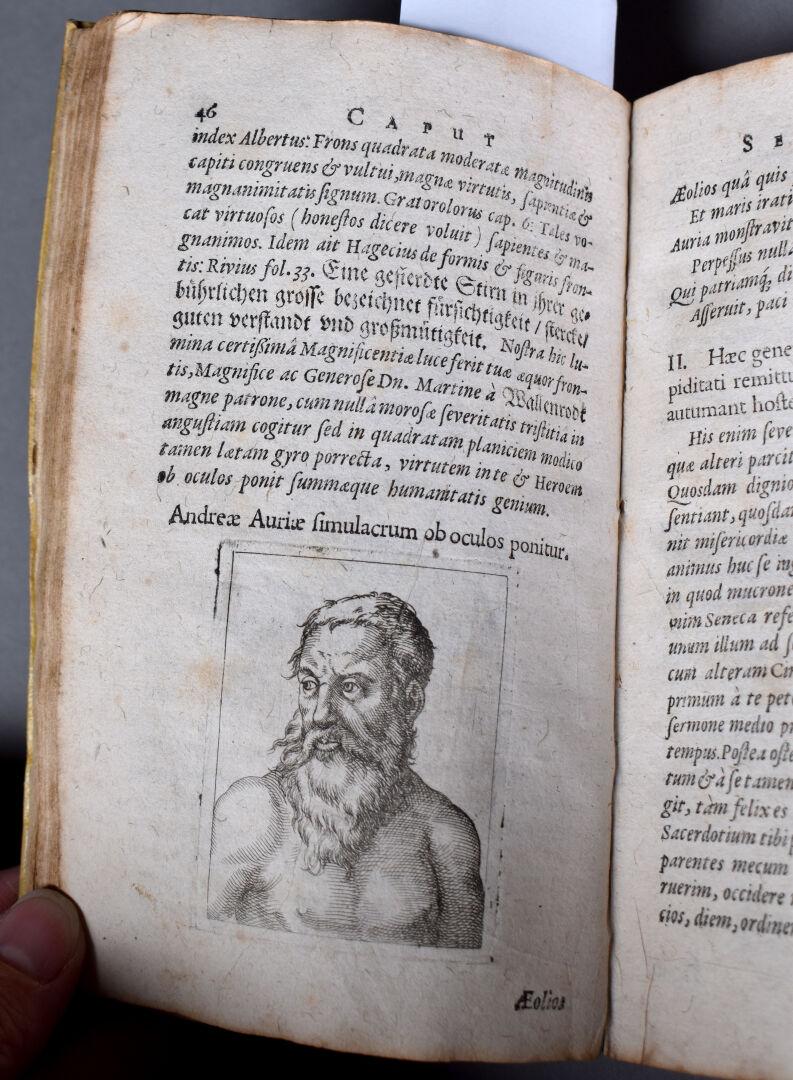 46
CAPUT
index Albertus: Frons quadrata moderatæ magnitudinis
capiti congruens & vultui, magnæ virtutis, sapientiæ &
magnanimitatis signum. Gratorolorus cap. 6: Tales vo-
cat virtuosos (honestos dicere voluit) sapientes & ma-
gnanimos. Idem ait Hagecius de formis & figuris fron-
tis: Rivius fol. 33. Eine gefierdte Stirn in ihrer ge-
bührlichen grosse bezeichnet fürsichtigkeit / stercke /
guten verstandt vnd großmütigkeit. Nostra hic lu-
mina certißimâ Magnificentiæ luce ferit tuæ æquor fron-
tis, Magnifice ac Generose Dn. Martine à Wallenrodt
magne patrone, cum nullâ morosæ severitatis tristitia in
angustiam cogitur sed in quadratam planiciem modico
tamen lætam gyro porrecta, virtutem in te & Heroem
ob oculos ponit summæque humanitatis genium.
Andreæ Auriæ simulacrum ob oculos ponitur.
Æolios
SE
Æolios quâ quis
Et maris irati
Auria monstravit
Perpessus null
Qui patriamq́; di
Asseruit, paci
II. Hæc gene
piditati remittu
autumant hoste
His enim seve
quæ alteri parcit
Quosdam dignio
sentiant, quosda
nit misericordiæ
animus huc se in
in quod mucrone
nim Seneca refe
unum illum ad s
cum alteram Cin
primum à te pet
sermone medio pr
tempus. Postea oste
tum & à se tamen
git, tàm felix es
Sacerdotium tibi p
parentes mecum
ruerim, occidere
cios, diem, ordine